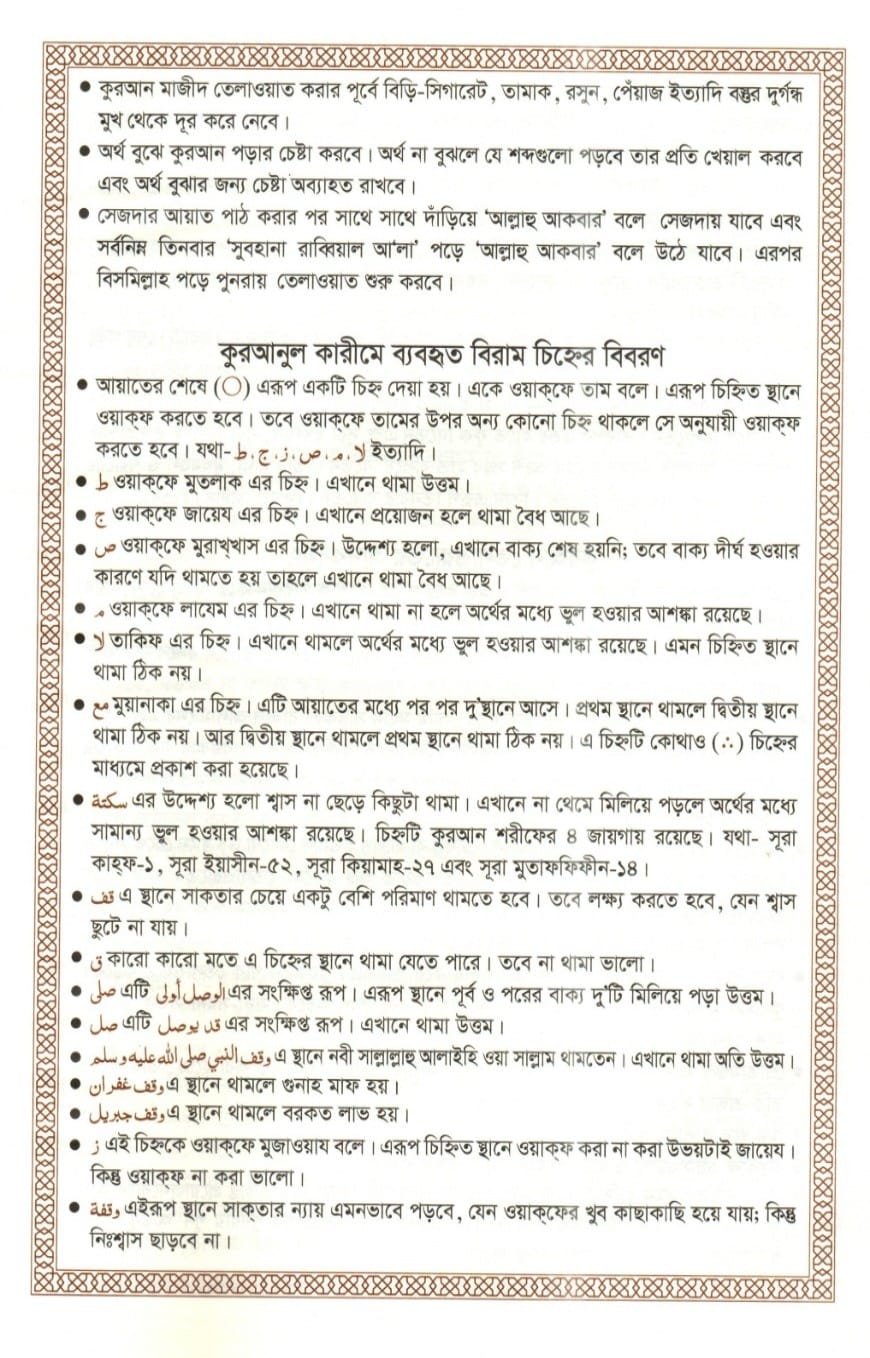 ● কুরআন মাজীদ তেলাওয়াত করার পূর্বে বিড়ি-সিগারেট, তামাক, রসুন, পেঁয়াজ ইত্যাদি বস্তুর দুর্গন্ধ
মুখ থেকে দূর করে নেবে।
● অর্থ বুঝে কুরআন পড়ার চেষ্টা করবে। অর্থ না বুঝলে যে শব্দগুলো পড়বে তার প্রতি খেয়াল করবে
এবং অর্থ বুঝার জন্য চেষ্টা অব্যাহত রাখবে।
● সেজদার আয়াত পাঠ করার পর সাথে সাথে দাঁড়িয়ে ‘আল্লাহু আকবার’ বলে সেজদায় যাবে এবং
সর্বনিম্ন তিনবার ‘সুবহানা রাব্বিয়াল আ‘লা’ পড়ে ‘আল্লাহু আকবার’ বলে উঠে যাবে। এরপর
বিসমিল্লাহ পড়ে পুনরায় তেলাওয়াত শুরু করবে।
কুরআনুল কারীমে ব্যবহৃত বিরাম চিহ্নের বিবরণ
● আয়াতের শেষে (○) এরূপ একটি চিহ্ন দেয়া হয়। একে ওয়াক্‌ফে তাম বলে। এরূপ চিহ্নিত স্থানে
ওয়াক্‌ফ করতে হবে। তবে ওয়াক্‌ফে তামের উপর অন্য কোনো চিহ্ন থাকলে সে অনুযায়ী ওয়াক্‌ফ
করতে হবে। যথা- ط ، ج ، ز ، ص ، م ، لا ইত্যাদি।
● ط ওয়াক্‌ফে মুতলাক এর চিহ্ন। এখানে থামা উত্তম।
● ج ওয়াক্‌ফে জায়েয এর চিহ্ন। এখানে প্রয়োজন হলে থামা বৈধ আছে।
● ص ওয়াক্‌ফে মুরাখ্‌খাস এর চিহ্ন। উদ্দেশ্য হলো, এখানে বাক্য শেষ হয়নি; তবে বাক্য দীর্ঘ হওয়ার
কারণে যদি থামতে হয় তাহলে এখানে থামা বৈধ আছে।
● م ওয়াক্‌ফে লাযেম এর চিহ্ন। এখানে থামা না হলে অর্থের মধ্যে ভুল হওয়ার আশঙ্কা রয়েছে।
● لا তাকিফ এর চিহ্ন। এখানে থামলে অর্থের মধ্যে ভুল হওয়ার আশঙ্কা রয়েছে। এমন চিহ্নিত স্থানে
থামা ঠিক নয়।
● مع মুয়ানাকা এর চিহ্ন। এটি আয়াতের মধ্যে পর পর দু’স্থানে আসে। প্রথম স্থানে থামলে দ্বিতীয় স্থানে
থামা ঠিক নয়। আর দ্বিতীয় স্থানে থামলে প্রথম স্থানে থামা ঠিক নয়। এ চিহ্নটি কোথাও (∴) চিহ্নের
মাধ্যমে প্রকাশ করা হয়েছে।
● سكتة এর উদ্দেশ্য হলো শ্বাস না ছেড়ে কিছুটা থামা। এখানে না থেমে মিলিয়ে পড়লে অর্থের মধ্যে
সামান্য ভুল হওয়ার আশঙ্কা রয়েছে। চিহ্নটি কুরআন শরীফের ৪ জায়গায় রয়েছে। যথা- সূরা
কাহ্‌ফ-১, সূরা ইয়াসীন-৫২, সূরা কিয়ামাহ-২৭ এবং সূরা মুতাফফিফীন-১৪।
● قف এ স্থানে সাকতার চেয়ে একটু বেশি পরিমাণ থামতে হবে। তবে লক্ষ্য করতে হবে, যেন শ্বাস
ছুটে না যায়।
● ق কারো কারো মতে এ চিহ্নের স্থানে থামা যেতে পারে। তবে না থামা ভালো।
● صلى এটি الوصل أولى এর সংক্ষিপ্ত রূপ। এরূপ স্থানে পূর্ব ও পরের বাক্য দু’টি মিলিয়ে পড়া উত্তম।
● صل এটি قد يوصل এর সংক্ষিপ্ত রূপ। এখানে থামা উত্তম।
● وقف النبي صلى الله عليه وسلم এ স্থানে নবী সাল্লাল্লাহু আলাইহি ওয়া সাল্লাম থামতেন। এখানে থামা অতি উত্তম।
● وقف غفران এ স্থানে থামলে গুনাহ মাফ হয়।
● وقف جبريل এ স্থানে থামলে বরকত লাভ হয়।
● ز এই চিহ্নকে ওয়াক্‌ফে মুজাওয়ায বলে। এরূপ চিহ্নিত স্থানে ওয়াক্‌ফ করা না করা উভয়টাই জায়েয।
কিন্তু ওয়াক্‌ফ না করা ভালো।
● وقفة এইরূপ স্থানে সাক্‌তার ন্যায় এমনভাবে পড়বে, যেন ওয়াক্‌ফের খুব কাছাকাছি হয়ে যায়; কিন্তু
নিঃশ্বাস ছাড়বে না।